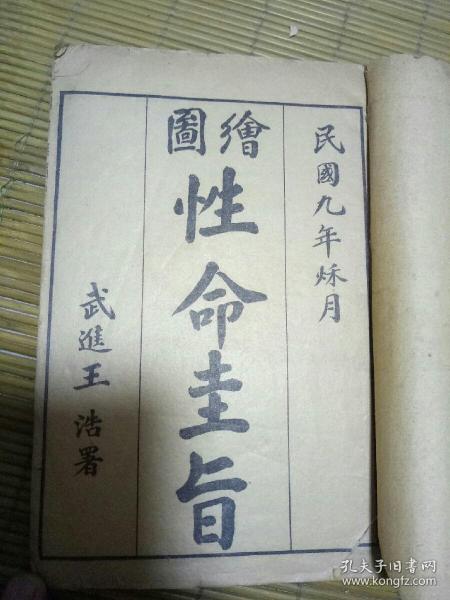 民國九年秌月
繪圖
性命圭旨
武進王浩署
孔夫子旧书网
www.kongfz.com